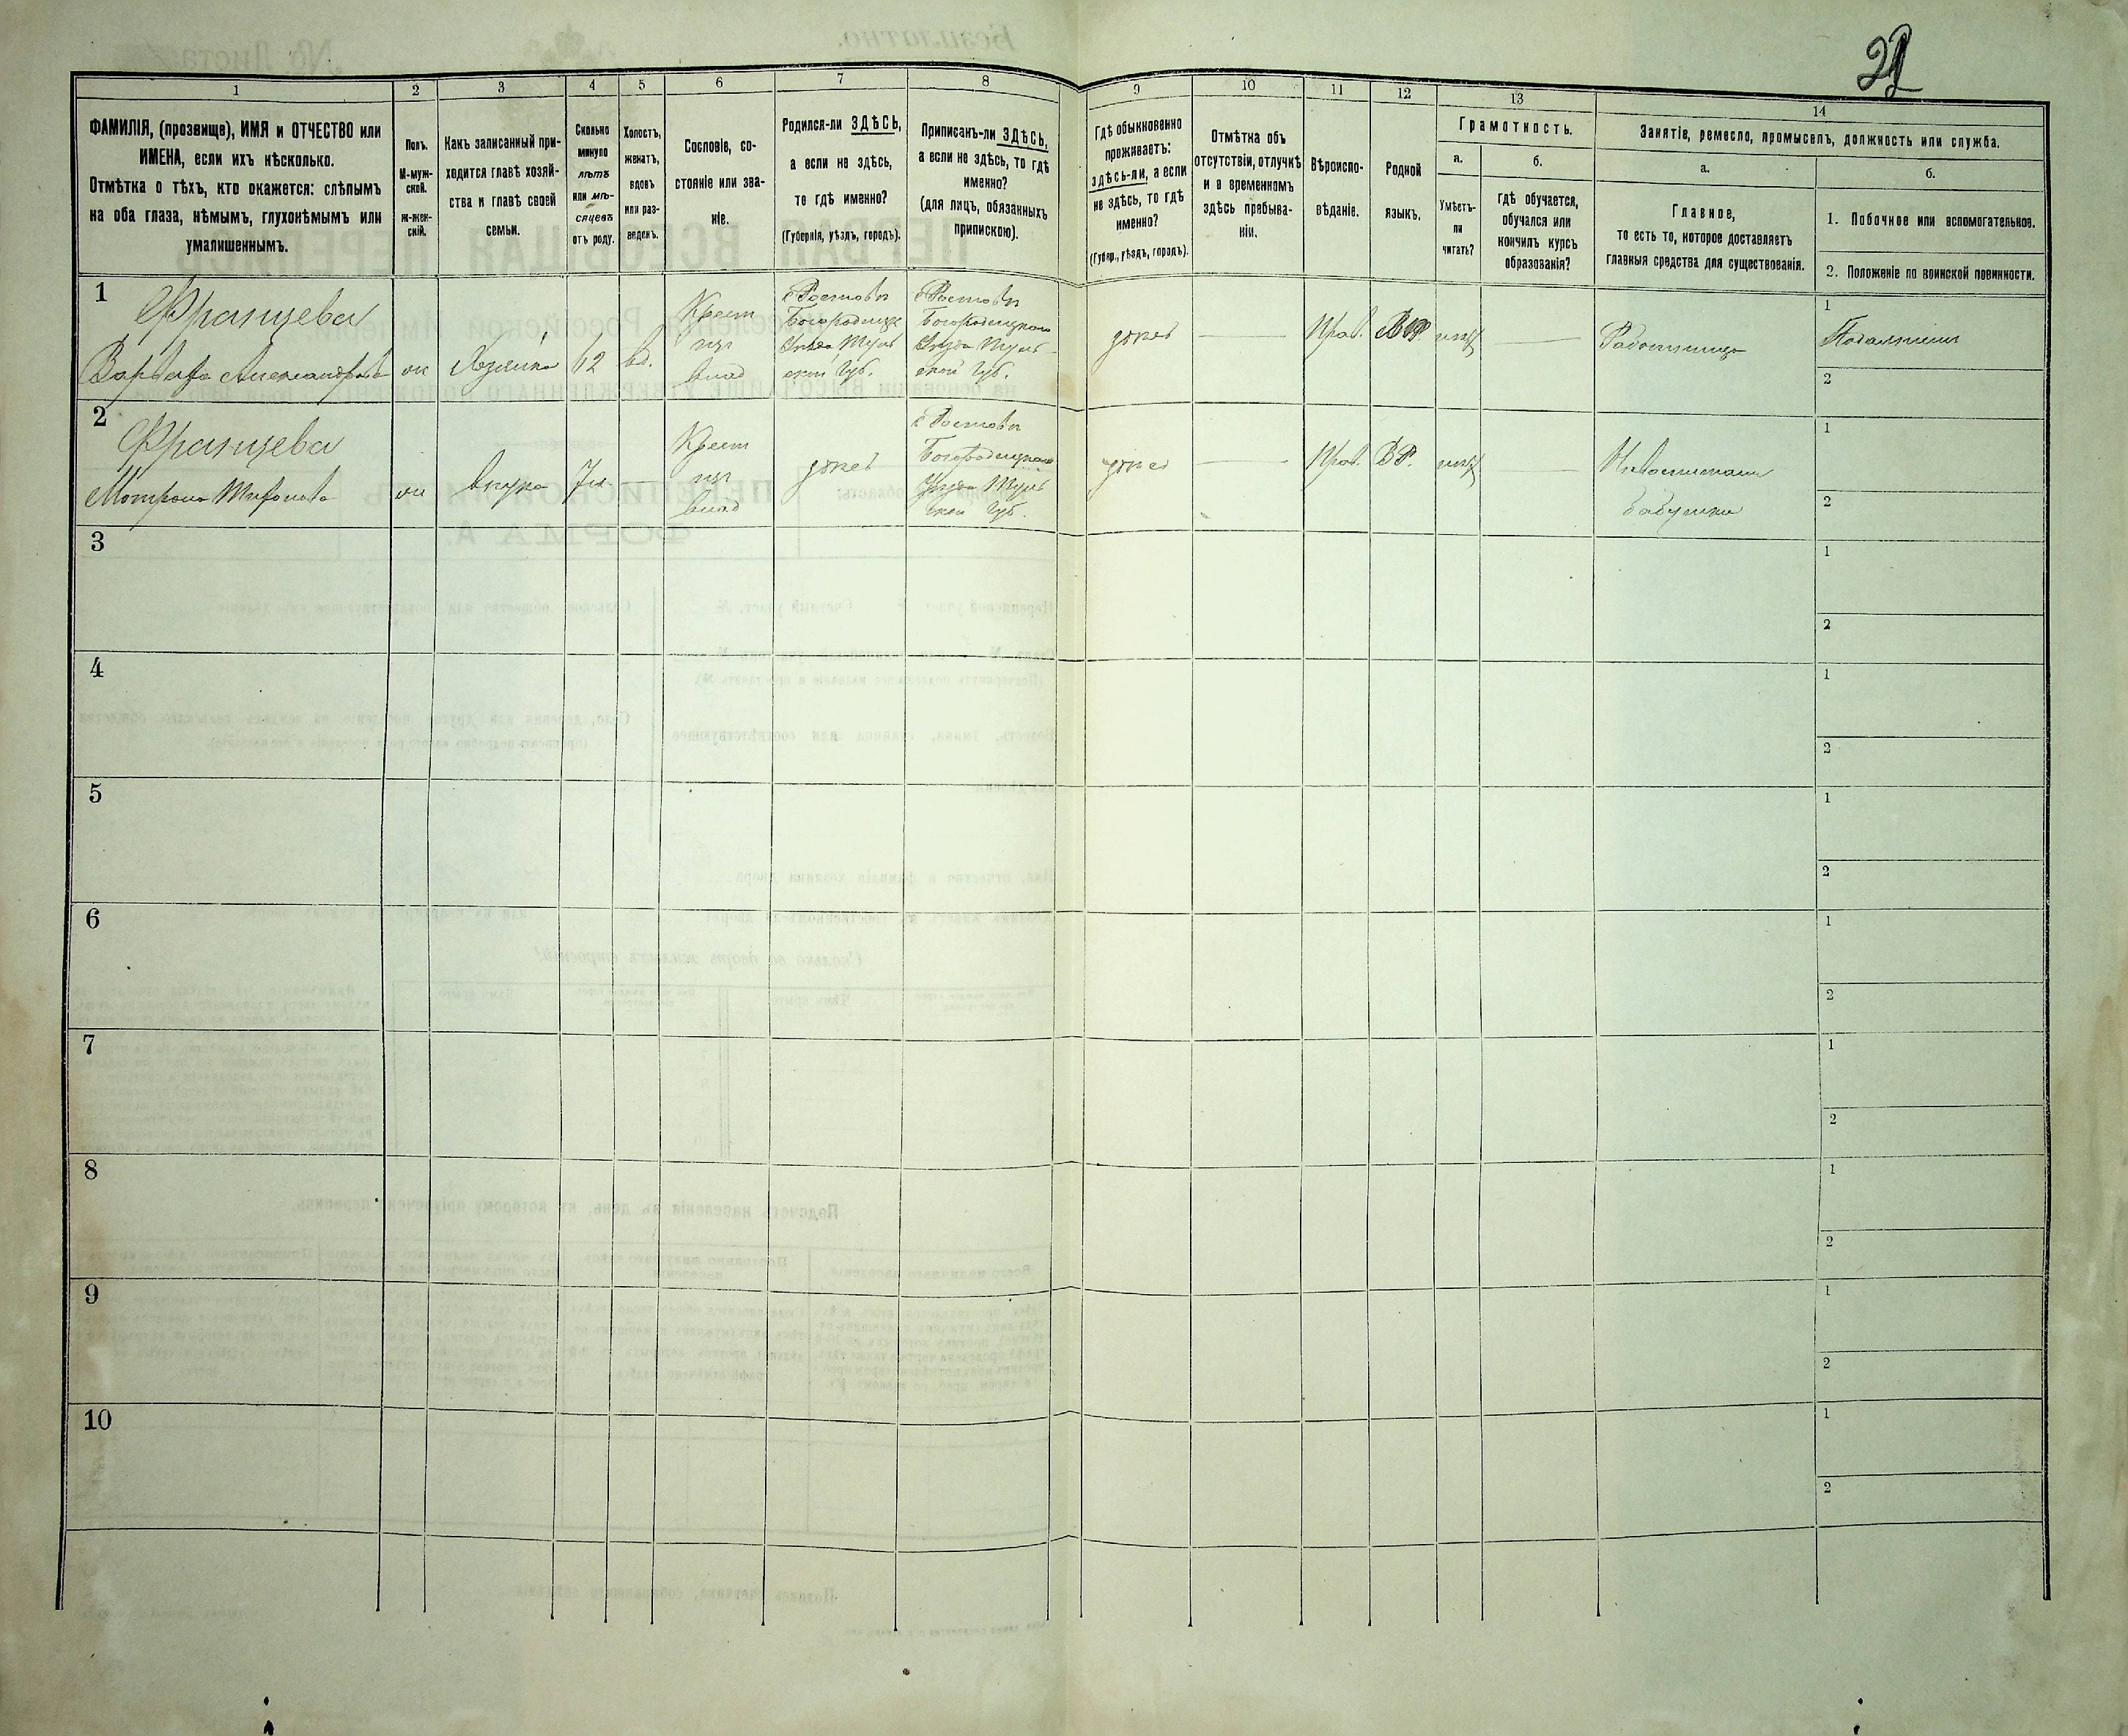 22
1
2
3
4
5
6
7
8
9
10
11
12
13
14
ФАМИЛІЯ, (прозвище), ИМЯ и ОТЧЕСТВО или
ИМЕНА, если ихъ нѣсколько.
Отмѣтка о тѣхъ, кто окажется: слѣпымъ
на оба глаза, нѣмымъ, глухонѣмымъ или
умалишеннымъ.
Полъ.
М-муж-
ской.
ж-жен-
скій.
Какъ записанный при-
ходится главѣ хозяй-
ства и главѣ своей
семьи.
Сколько
минуло
лѣтъ
или мѣ-
сяцевъ
отъ роду.
Холостъ,
женатъ,
вдовъ
или раз-
веденъ.
Сословіе, со-
стояніе или зва-
ніе.
Родился-ли ЗДѢСЬ,
а если не здѣсь,
то гдѣ именно?
(Губернія, уѣздъ, городъ).
Приписанъ-ли ЗДѢСЬ,
а если не здѣсь, то гдѣ
именно?
(для лицъ, обязанныхъ
припискою).
Гдѣ обыкновенно
проживаетъ:
здѣсь-ли, а если
не здѣсь, то гдѣ
именно?
(Губер., уѣздъ, городъ).
Отмѣтка объ
отсутствіи, отлучкѣ
и о временномъ
здѣсь пребыва-
ніи.
Вѣроиспо-
вѣданіе.
Родной
языкъ.
Грамотность.
а.
Умѣетъ-
ли
читать?
б.
Гдѣ обучается,
обучался или
кончилъ курсъ
образованія?
Занятіе, ремесло, промыселъ, должность или служба.
а.
Главное,
то есть то, которое доставляетъ
главныя средства для существованія.
б.
1. Побочное или вспомогательное.
2. Положеніе по воинской повинности.
1
Францева
Варвара Александрова
ж
Хозяйка
62
вд.
Крест
изъ
влад
с Ростовъ
Богородицк
Уѣзда Туль
ской Губ.
с Ростовъ
Богородицкаго
Уѣзда Туль
ской Губ.
здѣсь
Прав.
ВР.
нѣтъ
Работница
1
2
2
Францева
Матрона
ж
Внука
7
Крест
изъ
влад
здѣсь
с Ростовъ
Богородицкаго
Уѣзда Туль
ской Губ.
здѣсь
Прав.
ВР.
нѣтъ
бабушки
1
2
3
1
2
4
1
2
5
1
2
6
1
2
7
1
2
8
1
2
9
1
2
10
1
2